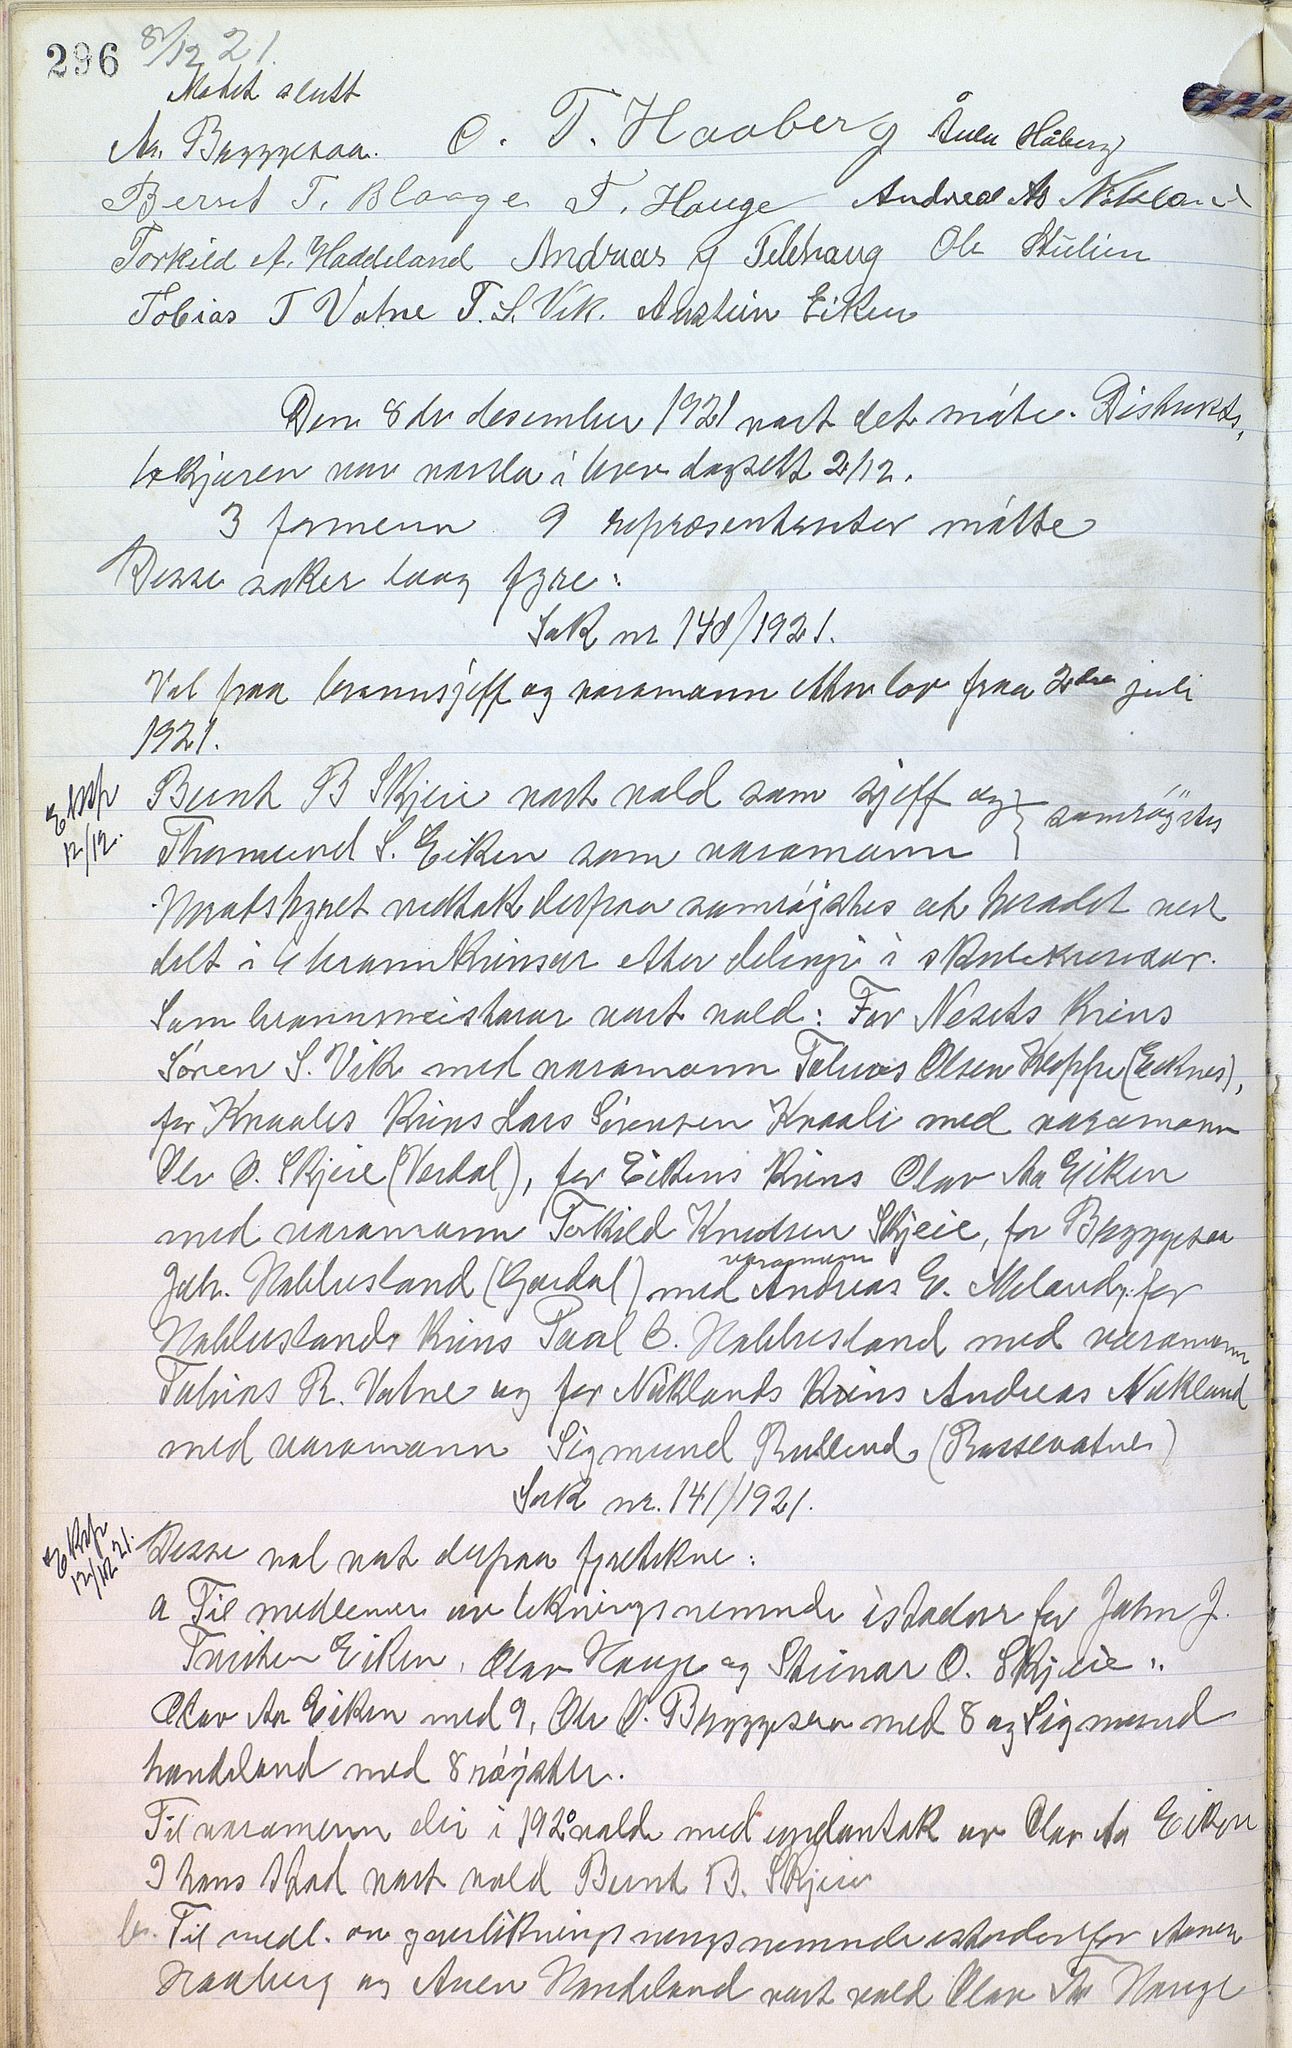 296 8/12 21.
Møtet slutt
Aa. Byggesaa. O. T. Haaberg Ånen Håberg
Bernt T. Bloage T. Hauge Andreas As Nokland
Torkild A. Haddeland Andreas G Telhaug Ole Stulien
Tobias T Vatne T. S. Vik. Austein Eiken
Den 8de desember 1921 vart det møte. Distrikts-
lækjaren var varsla i brev dagsett 2/12.
3 formenn 9 repræsentantar møtte
Desse saker laag fyre:
Sak nr 140/1921.
Val paa brannsjeff og varamann etter lov fraa 2dra juli
1921.
Eksp
12/12.
Bernt B Skjeie vart vald som sjeff og } samrøystes
Thormund S. Eiken som varamann
Heradstyret vedtok derpaa samrøystes at heradet vert
delt i 6 brannkrinsar etter delingi i skulekrinsar.
Som brannmeistarar vart vald: For Nesets krins
Søren S. Vik med varamann Tobias Olsen Kloppe (Eiknes),
for Kraalis krins Lars Sørensen Kraali med varamann
Ole O. Skjeie (Verdal), for Eikens krins Olav Aa Eiken
med varamann Torkild Knutsen Skjeie, for Byggesaa
Joh. Nablesland (Gardal) med varamann Andreas E. Meland, for
Nableslands krins Paal O. Nablesland med varamann
Tobias R. Vatne og for Nøklands krins Andreas Nøkland
med varamann Sigmund Rullend (Rossevatne)
Sak nr. 141/1921.
Eksp
12/12 21.
Desse val vart derpaa fyretekne:
a Til medlemer av likningsnemnda istadenfor John J.
Eiken, Olav Hauge og Steinar O. Skjeie:
Olav Aa Eiken med 9, Ole O. Byggesaa med 8 og Sigmund
handeland med 8 røyster.
Til varamenn dei i 1920 valde med undantak av Olav Aa Eiken
I hans stad vart vald Bernt B. Skjeie
b. Til medl. av yverlikningsnemnda istadenfor Aanen
Haaberg og Anen Handeland vart vald Olav Tor Hauge